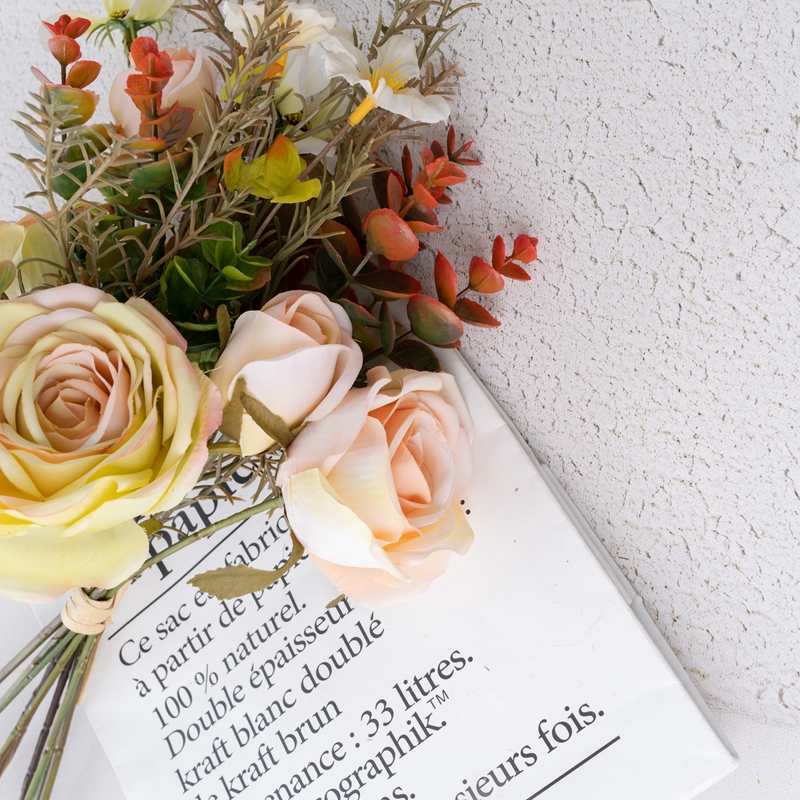 papie
Ce sac e fabriq
à partir de papie
100 % naturel.
Double épaisseur
kraft blanc doublé
de kraft brun
enance : 33 litres.
ographik.™
ns.
sieurs fois.